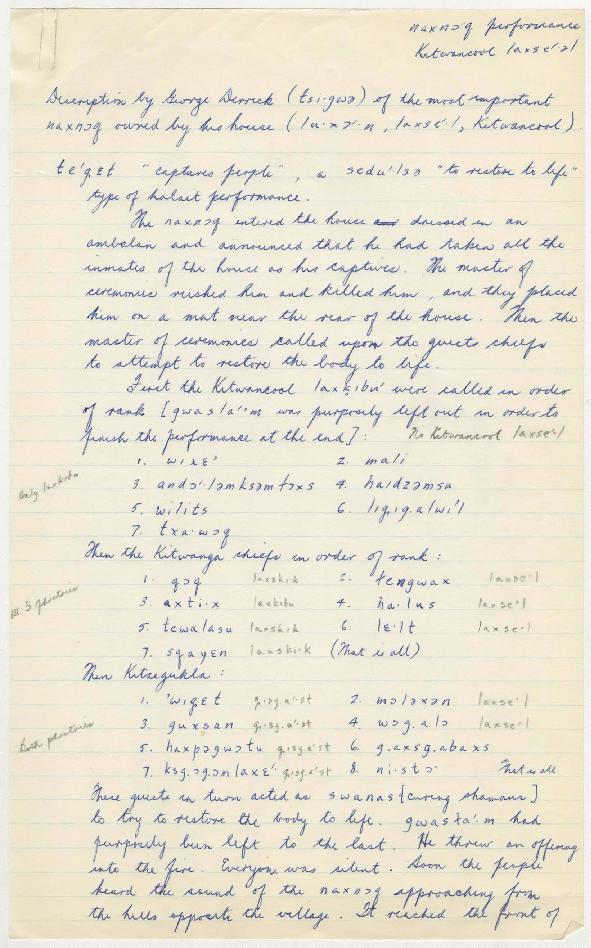 naxnɔq performance
Kitwancool laxse'·əl
Description by George Derrick (tsi·gwə) of the most important
naxnɔq owned by his house (lu·xɔ'·n, laxsé·l, Kitwancool).
te'gɛt "captures people", a sedu'·lsə "to restore to life"
type of halaet performance.
The naxnɔq entered the house dressed in an
ambelan and announced that he had taken all the
inmates of the house as his captives. The master of
ceremonies rushed him and killed him, and they placed
him on a mat near the rear of the house. Then the
master of ceremonies called upon the guests chiefs
to attempt to restore the body to life.
First the Kitwancool laxḳibu' were called in order
of rank [gwasła'·m was purposly left out in order to
finish the performance at the end]: No Kitwancool laxse'l
1. wixɛ' 2. mali
Only laxkibu
3. andɔ'·ləmksəmtɔxs 4. haidzəmsu
5. wilits 6. lig.ig.alwi'l
7. txa·wɔq
Then the Kitwanga chiefs in order of rank:
1. qɔq laxskik 2. tɛngwax laxse'l
All 3 phratries
3. axti·x laxkibu 4. ha·lus laxse'l
5. tɛwalasu laxskik 6. lɛ·lt laxse'l
7. sgayɛn laxski·k (That is all)
Then Kitsegukla:
1. 'wigɛt g.isg.a'·st 2. mɔləxən laxse'l
3. guxsan g.isg.a'·st 4. wɔg.alɔ laxse'l
Both phratries
5. haxpəgwɔtu g.isg.a'st 6. g.axsg.abaxs
7. ksg.ɔg.ɔmlaxɛ'· g.isg.a'st 8. ni·stɔ· That is all
These guests in turn acted as swanas [curing shamans]
to try to restore the body to life. gwasła'·m had
purposly been left to the last. He threw an offering
into the fire. Everyone was silent. Soon the people
heard the sound of the naxnɔq approaching from
the hills opposite the village. It reached the front of